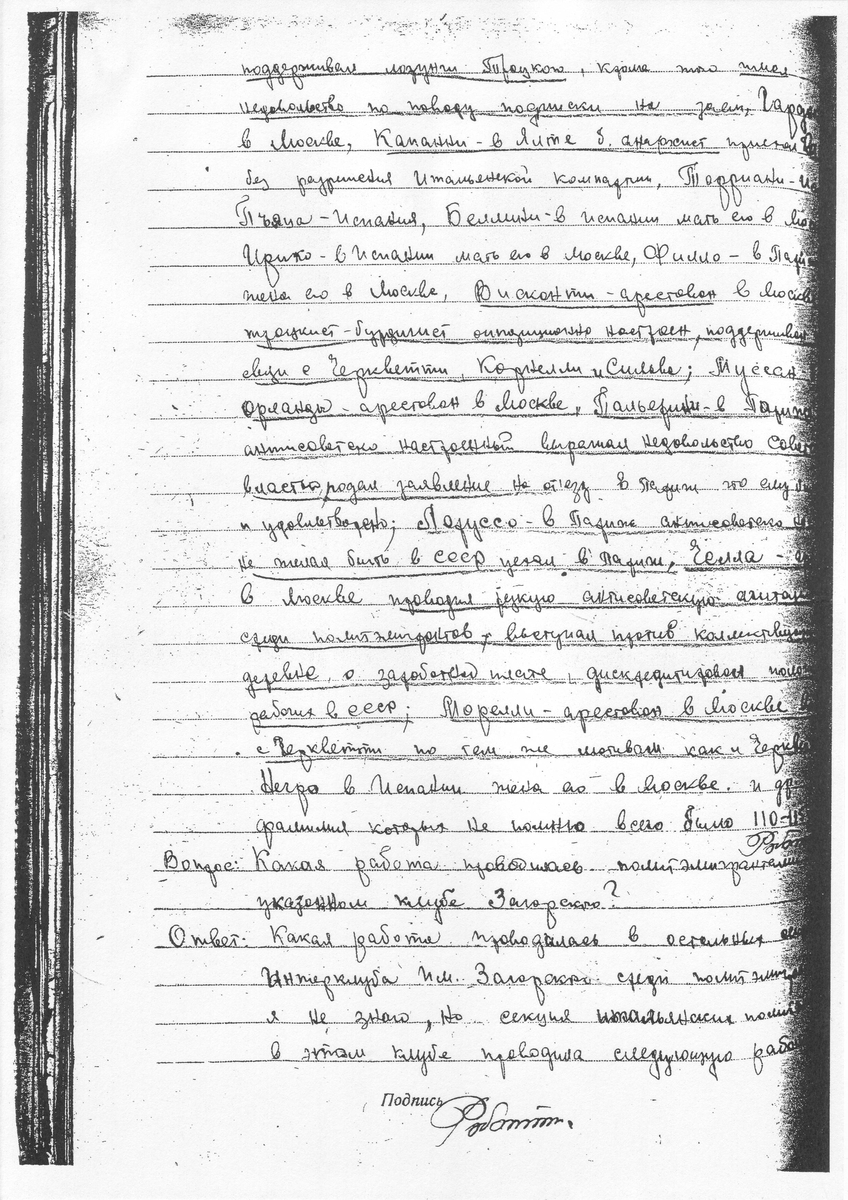 поддерживал лозунги Троцкого, кроме того имел
недовольство по поводу подписки на заем,
в Москве, Капанни - в Ялте б. анархист приехал
без разрешения Итальянской компартии, Торриани -
Пъяца - Испания, Беллини - в Испании мать его в
в Испании мать его в Москве, Филло - в
жена его в Москве, Висконти - арестован в Москве
троцкист-бурдигист оппозиционно настроен, поддерживал
связи с Черкветти, Корнелли и Сильва;
Орландо - арестован в Москве, Пальерини - в
антисоветско настроенный выражал недовольство
властью, подал заявление на от'езд в Париж что ему
и удовлетворено; Перуссо - в Париж антисоветско
не желая быть в СССР уехал в Париж, Челла -
в Москве проводил резкую антисоветскую
среди политэмигрантов, выступал против
деревне, о заработной плате, дискредитировал
рабочих в СССР; Морелли - арестован в Москве
с Черкветти по тем же мотивам как и
Негро в Испании жена его в Москве. и
фамилия которых не помню всего было
Вопрос: Какая работа проводилась
указанном клубе Загорского?
Ответ: Какая работа проводилась в остальных
Интерклуба им. Загорского среди
я не знаю, но секция итальянских
в этом клубе проводила следующую
Подпись Роботти.